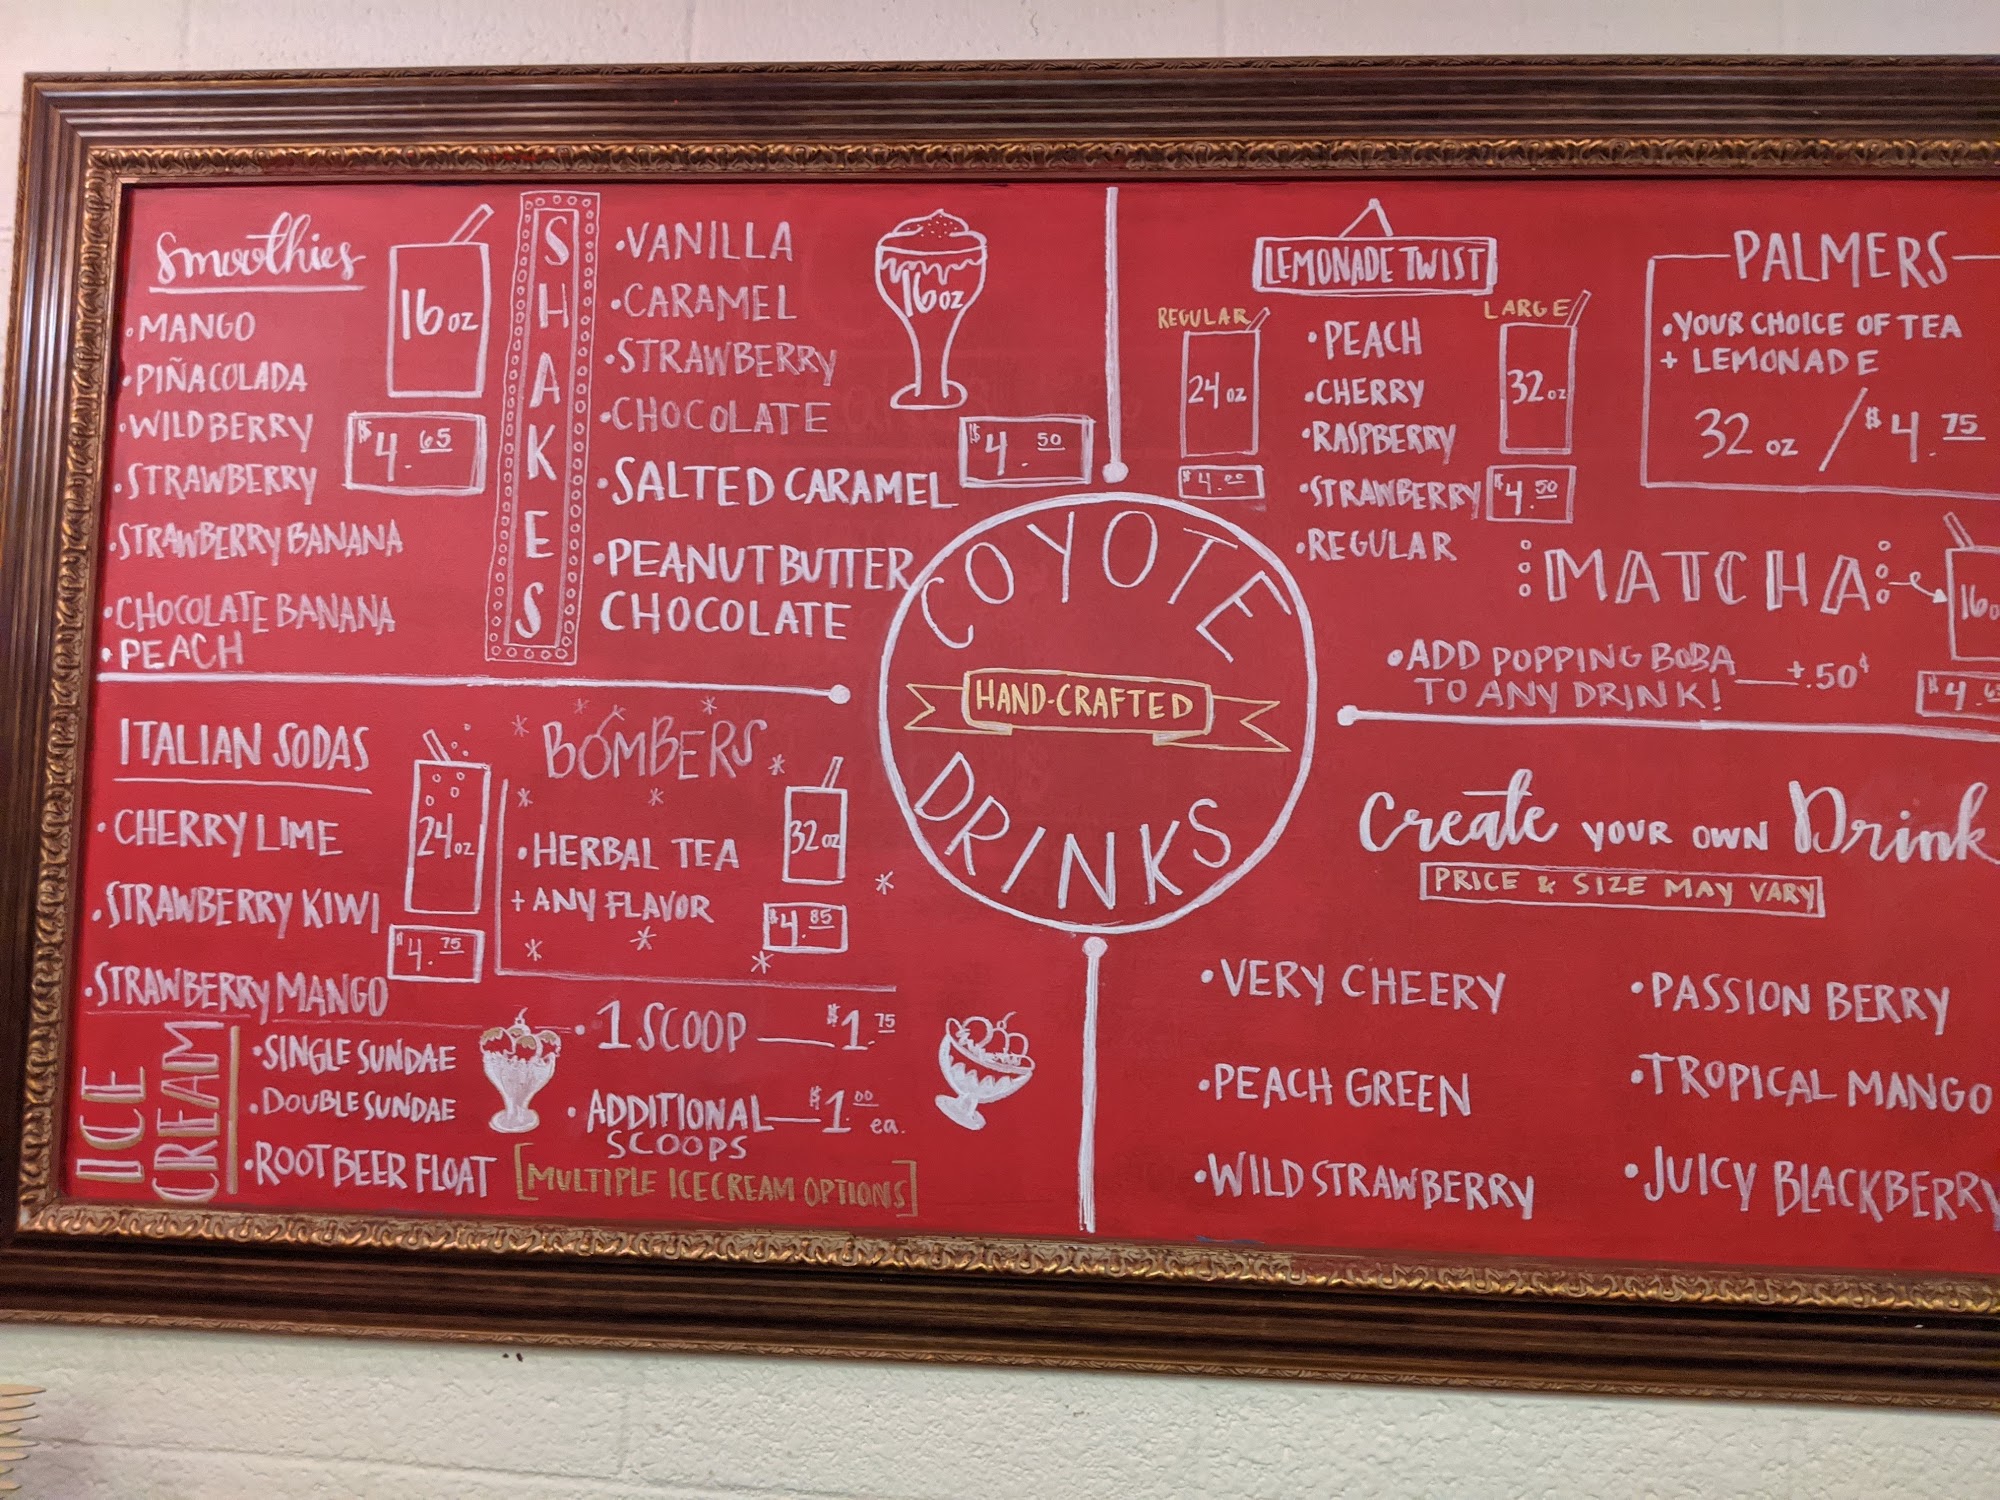 Smoothies
16 oz
• MANGO
• PIÑACOLADA
• WILDBERRY
• STRAWBERRY
• STRAWBERRY BANANA
• CHOCOLATE BANANA
• PEACH
$4.65
SHAKES
• VANILLA
• CARAMEL
• STRAWBERRY
• CHOCOLATE
• SALTED CARAMEL
• PEANUT BUTTER
CHOCOLATE
16 oz
$4.50
LEMONADE TWIST
REGULAR
24 oz
$4.00
• PEACH
• CHERRY
• RASPBERRY
• STRAWBERRY
• REGULAR
LARGE
32 oz
$4.50
PALMERS
• YOUR CHOICE OF TEA
+ LEMONADE
32 oz / $4.75
MATCHA
• ADD POPPING BOBA
TO ANY DRINK! +.50¢
COYOTE
HAND-CRAFTED
DRINKS
ITALIAN SODAS
• CHERRY LIME
• STRAWBERRY KIWI
• STRAWBERRY MANGO
24 oz
$4.75
BOMBERS
• HERBAL TEA
+ ANY FLAVOR
32 oz
$4.85
ICE
CREAM
• SINGLE SUNDAE
• DOUBLE SUNDAE
• ROOTBEER FLOAT
• 1 SCOOP $1.75
• ADDITIONAL $1.00 ea.
SCOOPS
[MULTIPLE ICECREAM OPTIONS]
Create YOUR OWN Drink
PRICE & SIZE MAY VARY
• VERY CHEERY
• PEACH GREEN
• WILD STRAWBERRY
• PASSION BERRY
• TROPICAL MANGO
• JUICY BLACKBERRY